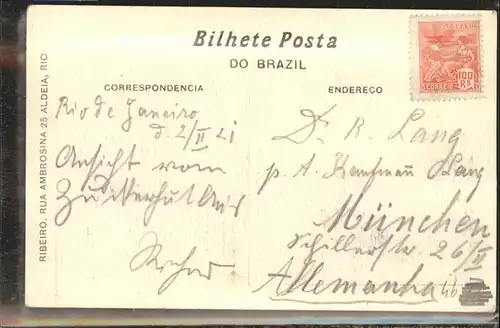 Bilhete Posta
DO BRAZIL
CORRESPONDENCIA
ENDEREÇO
BRAZIL
CORREIO 100 RS
RIBEIRO, RUA AMBROSINA 25 ALDEIA, RIO
Rio de Janeiro
d. 2/II 21
Ansicht vom
Zuckerhut
Dr. R. Lang
p. A. Kaufmann Lang
München
Schillerstr 26/II
Allemanha